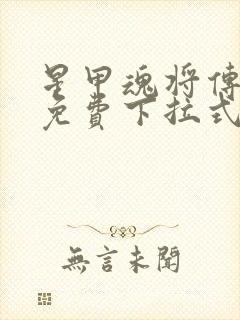 星甲魂将傳
免費下拉式
無言未聞